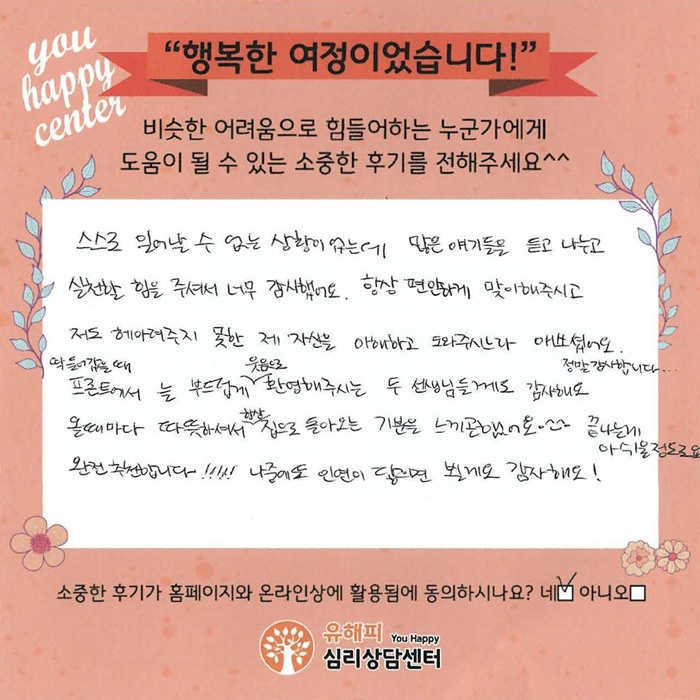 you
happy
center
“행복한 여정이었습니다!”
비슷한 어려움으로 힘들어하는 누군가에게
도움이 될 수 있는 소중한 후기를 전해주세요^^
스스로 일어날 수 없는 상황이었는데 많은 얘기들은 듣고 나누고
실천할 힘을 주셔서 너무 감사했어요. 항상 편안하게 맞이해주시고
저도 헤아려주지 못한 제 자신을 이해하고 도와주시느라 애쓰셨어요.
딱 들어갔을 때 웃음으로 정말 감사합니다...
프론트에서 늘 부드럽게 환영해주시는 두 선생님들께도 감사해요
올때마다 따뜻하셔서 항상 집으로 돌아오는 기분을 느끼곤했어요^^ 끝나는게
아쉬울정도로요
완전 추천합니다!!!!! 나중에도 인연이 닿으면 뵐게요 감사해요!
소중한 후기가 홈페이지와 온라인상에 활용됨에 동의하시나요? 네☑ 아니오□
유해피 You Happy
심리상담센터